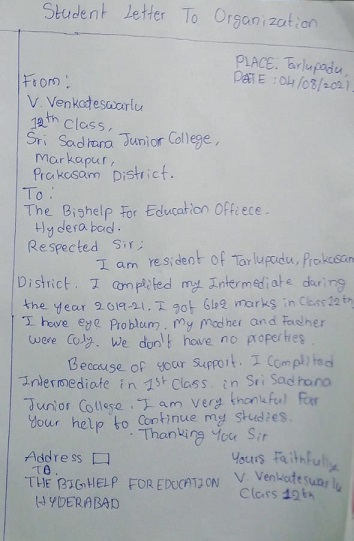 Student Letter To Organization
PLACE: Tarlupadu,
DATE : 04/08/2021.
From:
V. Venkateswarlu
12th Class,
Sri Sadhana Junior College,
Markapur,
Prakasam District.
To:
The Bighelp For Education Offiece.
Hyderabad.
Respected Sir;
I am resident of Tarlupadu, Prakasam
District. I complited my Intermediate daring
the year 2019-21. I got marks in Class 12th
I have eye Problum. My mother and Father
were Culy. We don't have no properties.
Because of your support. I Complited
Intermediate in 1st Class. in Sri Sadhana
Junior College. I am very thankful For
Your help to Continue my studies.
Thanking You Sir
Address □
Yours Faithfully
TO.
THE BIGHELP FOR EDUCATION
V. Venkateswarlu
HYDERABAD
Class 12th